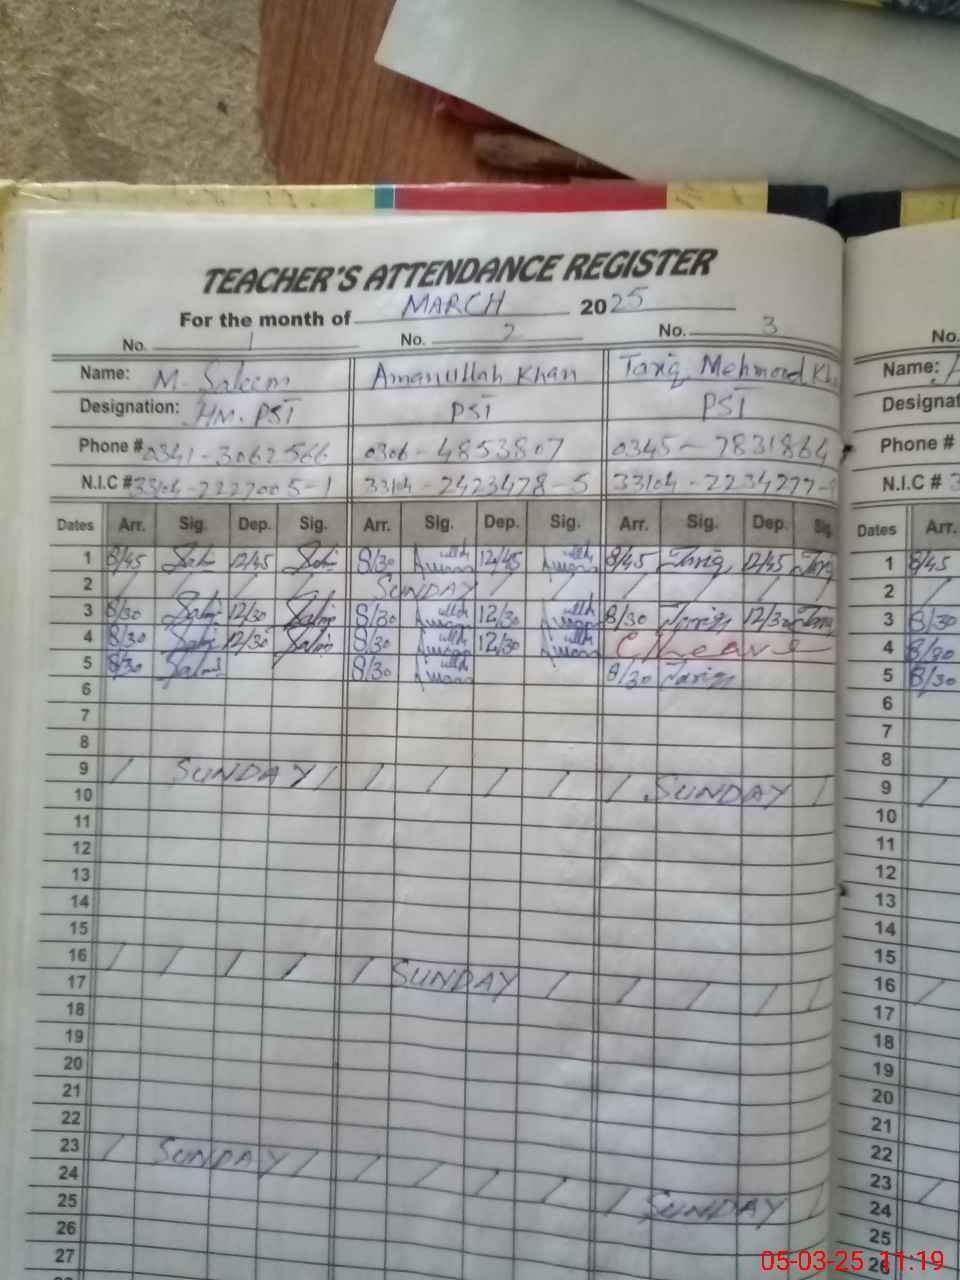 TEACHER'S ATTENDANCE REGISTER
For the month of MARCH 2025
No. 1 No. 2 No. 3
Name: M. Saleem Amanullah Khan Tariq Mehmood
Designation: HM. PST PST PST
Phone # 0341-3062566 0306-4853807 0345-7831864
N.I.C # 33104-2227005-1 33104-2423478-5 33104-2234277-
Dates Arr. Sig. Dep. Sig. Arr. Sig. Dep. Sig. Arr. Sig. Dep. Sig.
1 8/45 12/45 8/30 12/45 8/45 Tariq 12/45
2 SUNDAY
3 8/30 12/30 8/30 12/30 8/30 Tariq 12/30
4 8/30 12/30 8/30 12/30 C/leave
5 8/30 8/30 8/30 Tariq
6
7
8
9 SUNDAY SUNDAY
10
11
12
13
14
15
16 SUNDAY
17
18
19
20
21
22
23 SUNDAY SUNDAY
24
25
26
27
No.
Name:
Designat
Phone #
N.I.C # 3
Dates Arr.
1 8/45
2
3 8/30
4 8/30
5 8/30
6
7
8
9
10
11
12
13
14
15
16
17
18
19
20
21
22
23
24
25
26
05-03-25 11:19